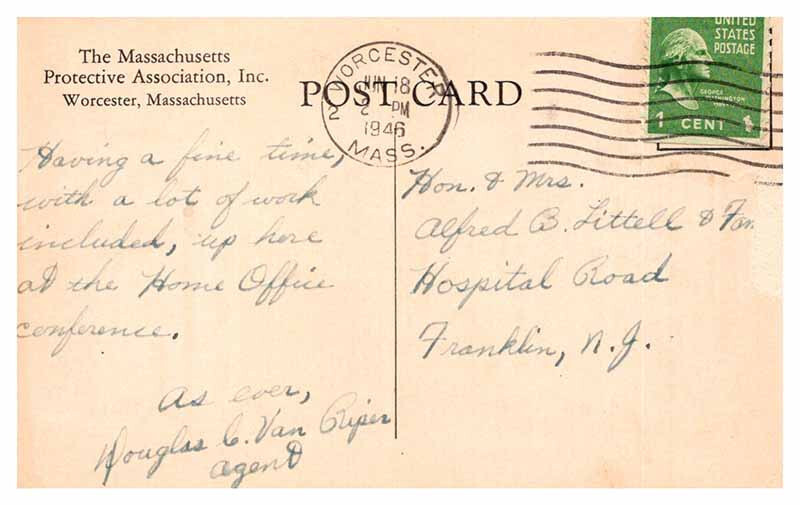 The Massachusetts
Protective Association, Inc.
Worcester, Massachusetts
POST CARD
WORCESTER
2
JUN 18
2 PM
1946
MASS.
UNITED
STATES
POSTAGE
GEORGE
WASHINGTON
1 CENT 1
Having a fine time,
with a lot of work
included, up here
at the Home Office
conference.
As ever,
Douglas C. Van Riper
agent
Hon. & Mrs.
Alfred B. Littell & Fam
Hospital Road
Franklin, N.J.